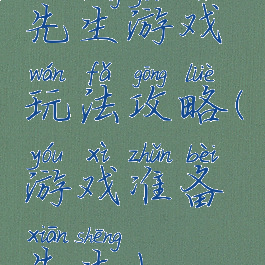 先生游戏
wán fǎ gōng lüè
玩法攻略(
yóu xì zhǔn bèi
游戏准备
xiān shēng
先生)